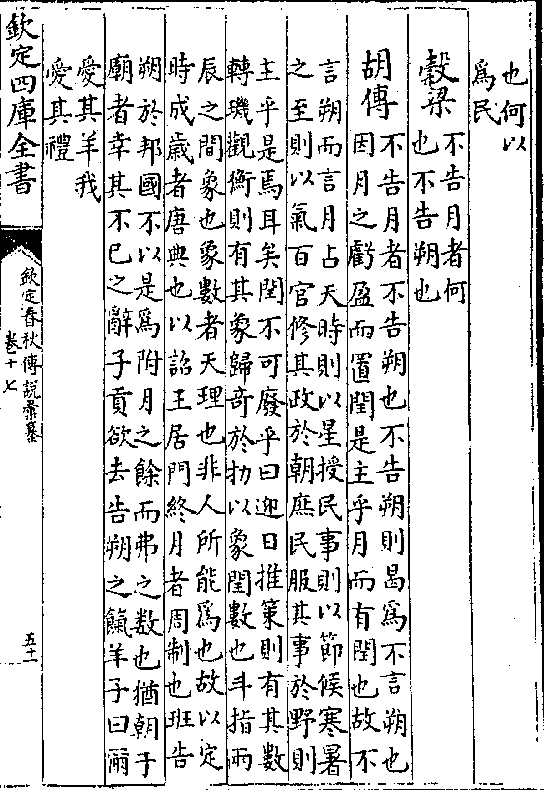 也何以
為民
穀梁
不告月者何
也不告朔也
胡傳
不告月者不告朔也不告朔則曷為不言朔也
因月之虧盈而置閏是主乎月而有閏也故不
言朔而言月占天時則以星授民事則以節候寒暑
之至則以氣百官修其政於朝庶民服其事於野則
主乎是焉耳矣閏不可廢乎曰迎日推策則有其數
轉璣觀衡則有其象歸奇於扐以象閏數也斗指兩
辰之間象也象數者天理也非人所能為也故以定
時成歲者唐典也以詔王居門終月者周制也班告
朔於邦國不以是為附月之餘而弗之數也猶朝于
廟者幸其不已之辭子貢欲去告朔之餼羊子曰爾
愛其羊我
愛其禮
欽定四庫全書
欽定春秋傳説彙纂
卷十七
五十一